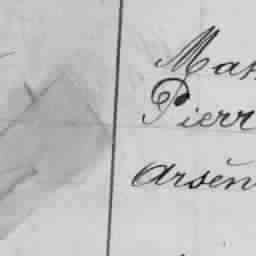 Mar
Pierr
Arsèn